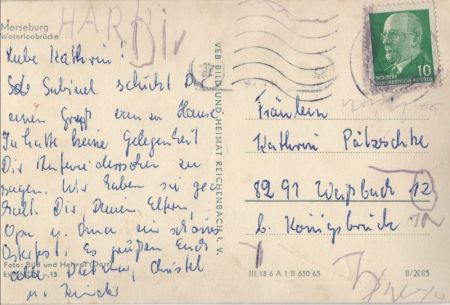 Merseburg
Waterloobrücke
HARDI
Liebe Kathrin!
Gabriel schickt Dir
einen Gruß von zu Hause
Ich hatte keine Gelegenheit
Dir Aufwiedersehen zu
sagen. Wir haben
Dir, Deinen Eltern,
Opa u. Oma ein schönes
Osterfest. Es grüßen Euch
alle Dietmar, Christel
u. Kinder
Foto: Bild und Heimat
15
VEB BILD UND HEIMAT REICHENBACH I. V.
DEUTSCHE
DEMOKRATISCHE REPUBLIK
10
Fräulein
Kathrin Pätzschke
8291 Weißbach 12
b. Königsbrück
III 18 6 A 1 B 650 65
8/2085